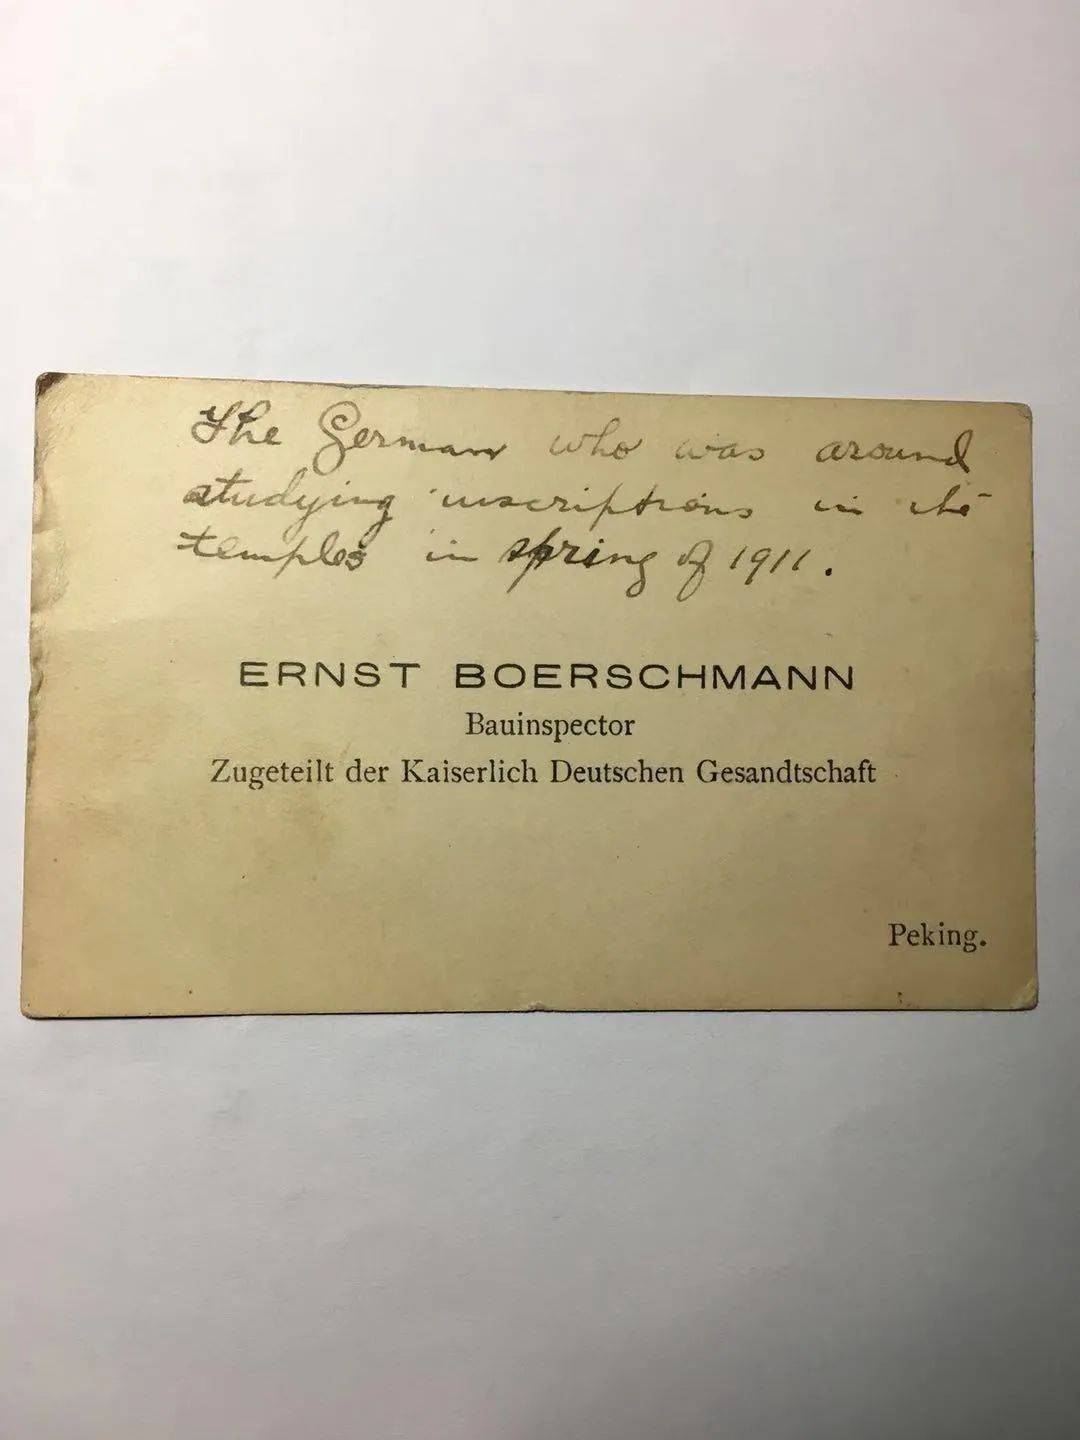 The German who was around
studying inscriptions in the
temples in spring of 1911.
ERNST BOERSCHMANN
Bauinspector
Zugeteilt der Kaiserlich Deutschen Gesandtschaft
Peking.